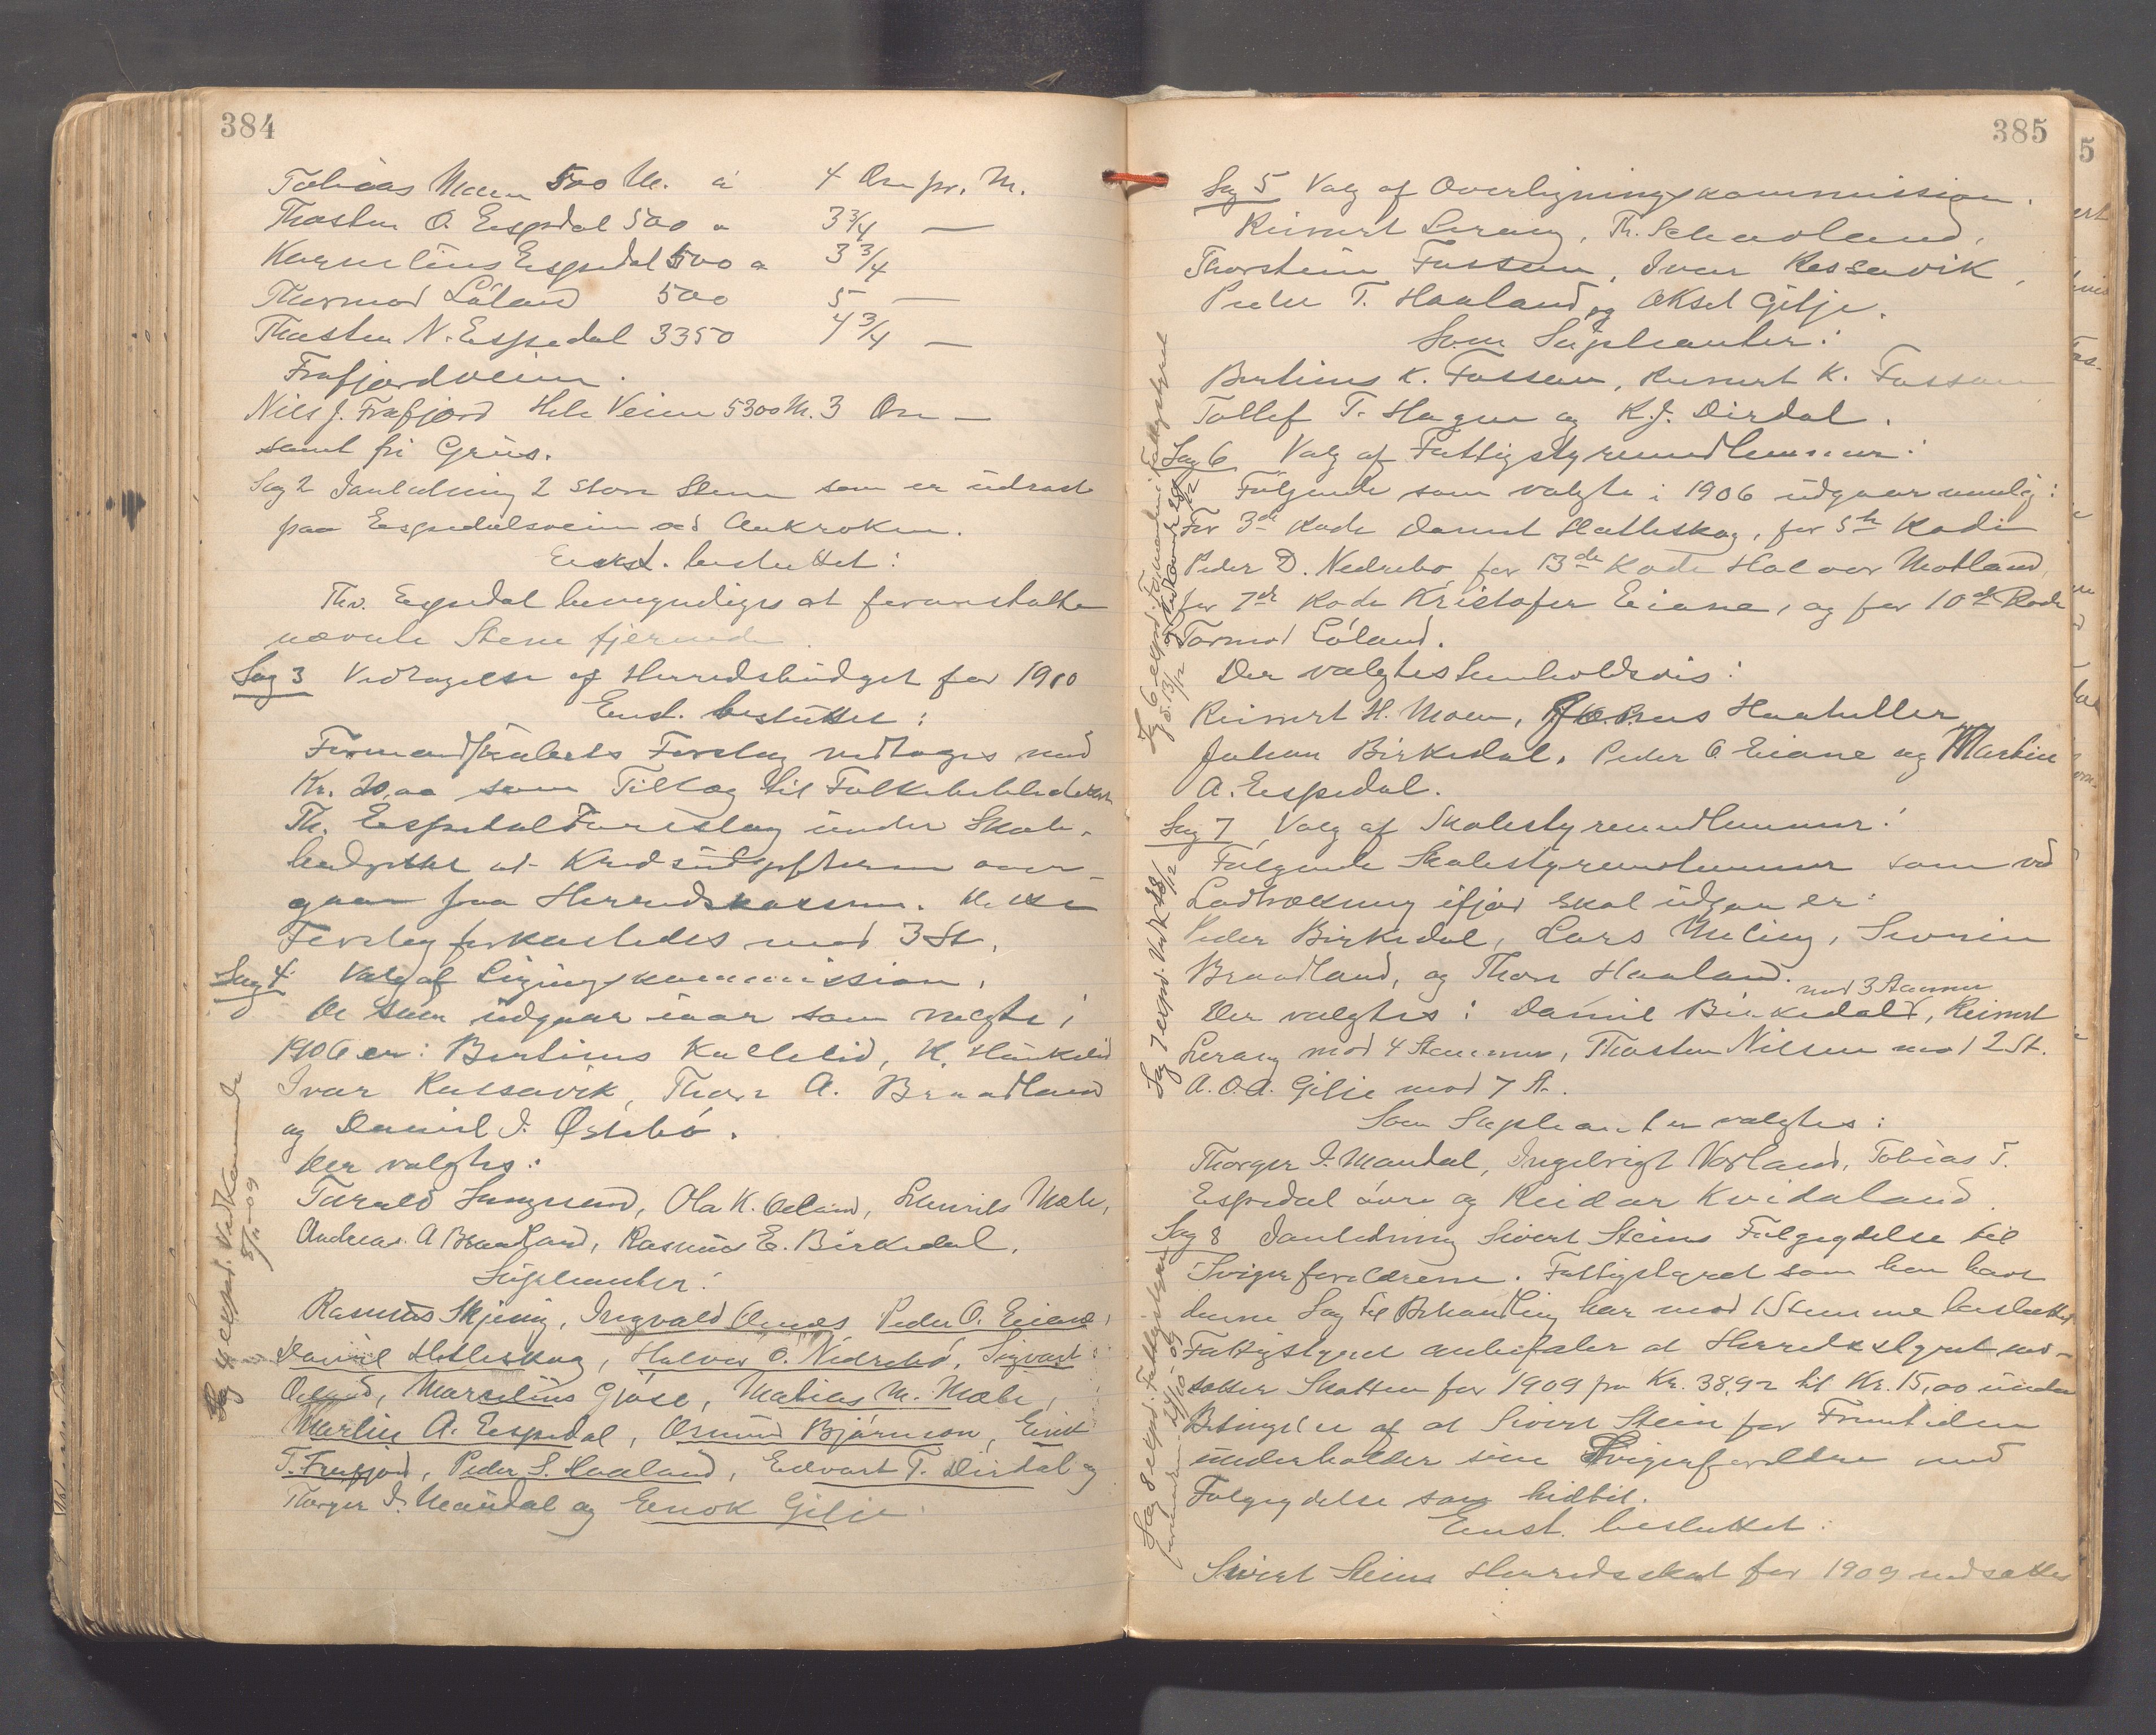 384
Tobias Moen 500 M. á 4 Øre pr. M.
Thosten O. Espedal 500 " 3 3/4 —
Kornelius Espedal 500 " 3 3/4
Thormod Lóland 500 5 —
Thosten N. Espedal 3350 4 3/4 —
Frafjordveien.
Nils J. Frafjord Hele Veien 5300 M. 3 Øre —
samt fri Grus.
Sag 2 Janledning 2 store Stene som er udraste
paa Espedalsveien ved Aukroken.
Enst. besluttet:
Th. Espedal bemyndiges at foranstalte
nævnte Stene fjernede.
Sag 3 Vedtagelse af Herredsbudget for 1910
Enst. besluttet:
Formandskabets Forslag vedtoges med
Kr. 20,00 som Tillæg til Folkebibliotheket
Th. Espedal Foreslog under Skole-
budgettet at Kredsudgifterne over-
gaar paa Herredskassen. Dette
Forslag forkastedes mod 3 St.
Sag 4 Valg af Ligningskommission.
De som udgaar iaar som valgte i
1906 er: Bertinus Kallelid, K. Hunkelid
Ivar Kassavik, Thore A. Braadland
og Daniel I. Østebó.
Der valgtes:
Tarald Tungesund, Ola K. Øeland, Laurits Mæle,
Andreas A Braadland, Rasmus E. Birkedal.
Supleanter:
Rasmus Skjeng, Ingvald Olenæs Peder O. Eiane,
Daniel Hetleskog, Halvor O. Nedrebó, Sigvart
Oeland, Marselius Gjøse, Matias M. Mæle,
Martin A. Espedal, Osmund Bjórnson, Eint
T. Frafjord, Peder S. Haaland, Edvart T. Dirdal og
Thorger I. Maudal og Enok Gilje.
Sag 4 expd. Vedkommende
5/11-09
385
Sag 5 Valg af Overligningskommission.
Reinert Lerang, Th. Schavland,
Thorstein Fossan, Ivar Kassavik,
Peder T. Haaland og Oksel Gilje.
Som Supleanter:
Bertinus K. Fossan, Reinert K. Fossan
Tollef T. Hagen og K. J. Dirdal.
Sag 6 Valg af Fattigstyremedlemmer:
Følgende som valgte i 1906 udgaar nemlig:
For 3de Rode Daniel Hatleskog, for 5te Rode
Peder D. Nedrebø, for 13de Rode Halvor Motland,
for 7de Rode Kristofer Eiane, og for 10de Rode
Tormod Lóland.
Der valgtes henholdsvis:
Reinert H. Moen, Haaheller
Johan Birkedal, Peder O Eiane og Martin
A. Espedal.
Sag 7 Valg af Skolestyremedlemmer:
Følgende Skolestyremedlemmer som ved
Lodtrækning ifjor skal udgaa er:
Peder Birkedal, Lars Meling, Severin
Braadland, og Thore Haaland.
med 3 Stemmer
Der valgtes: Daniel Birkedal, Reinert
Lerang mod 4 Stemmer, Thosten Nilsen mod 2 St.
A. O. A. Gilje mod 7 St.
Som Supleanter valgtes:
Thorger I. Maudal, Ingebrigt Norland, Tobias T.
Espedal óvre og Reidar Kvidaland.
Sag 8 Janledning Sivert Steins Følgeydelse til
Svigerforeldrene. Fattigstyret som har havt
denne Sag til Behandling har mod 1 Stemme besluttet
Fattigstyret anbefaler at Herredsstyret ned-
sætter Skatten for 1909 fra Kr. 38,92 til Kr. 15,00 under
Betingelse af at Sivert Stein for Fremtiden
underholder sine Svigerforeldre med
Følgeydelse som hidtil.
Enst. besluttet:
Sivert Steins Herredsskat for 1909 nedsættes
Sag 6 expd. Formanden i Fattigstyret
d. 13/12 og Vedkommende
Sag 7 expd. Vedk.
Sag 8 expd. Fattigstyrets
formand 24/10-09